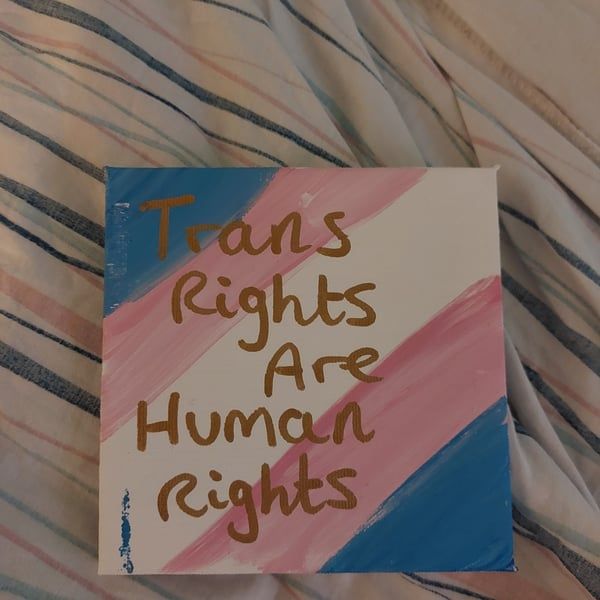 Trans
Rights
Are
Human
Rights